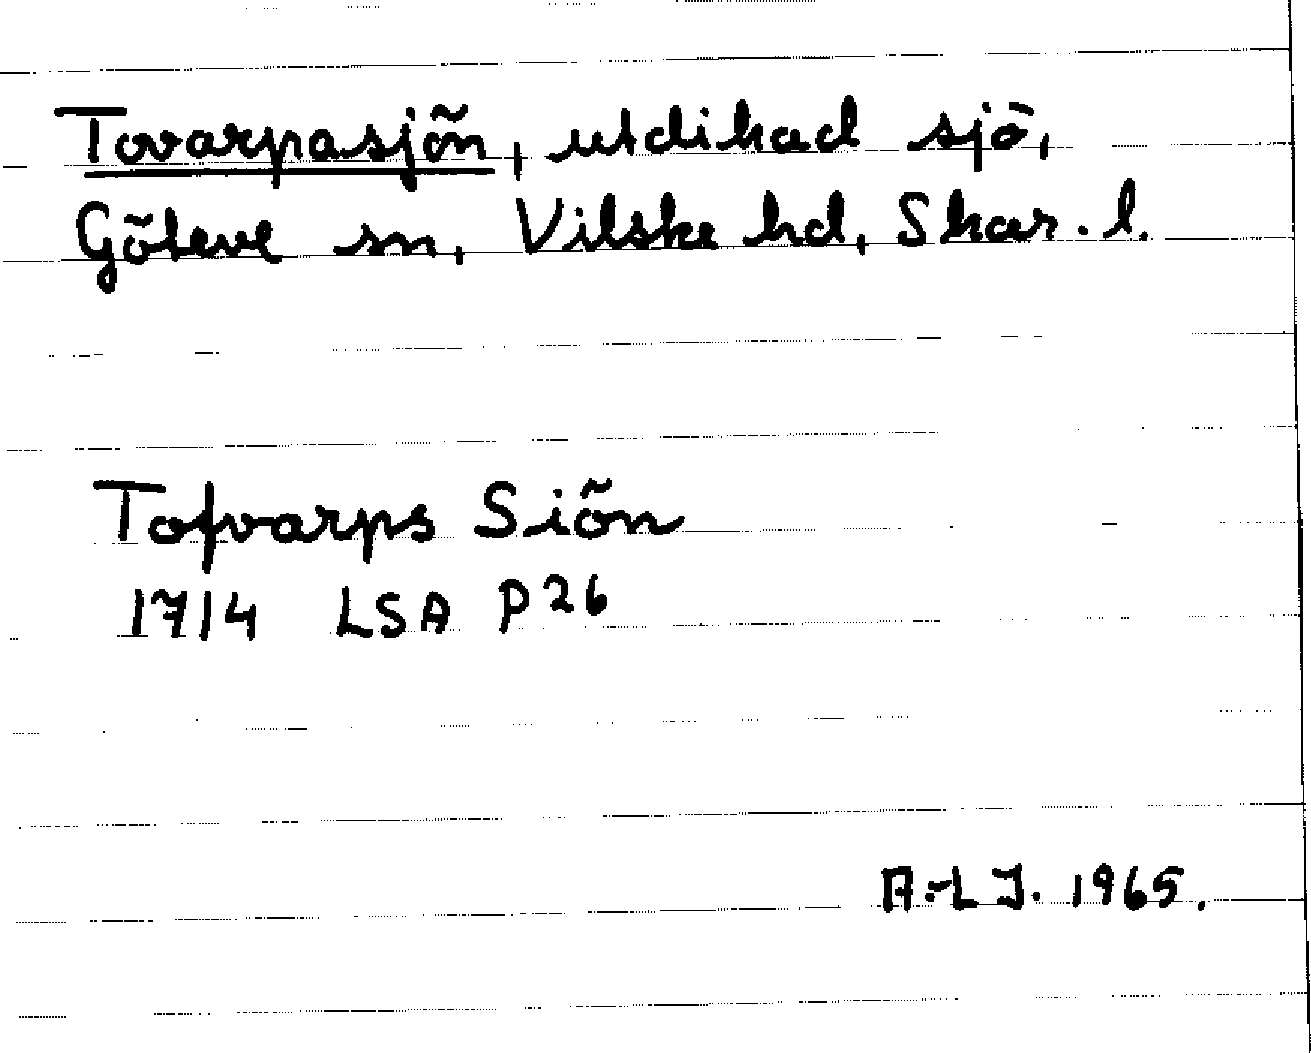 Tovarpasjön, utdikad sjö,
Göteve sn, Vilske hd, Skar. l.
Tofvarps Siön
1714 LSA P26
A.-L J. 1965.